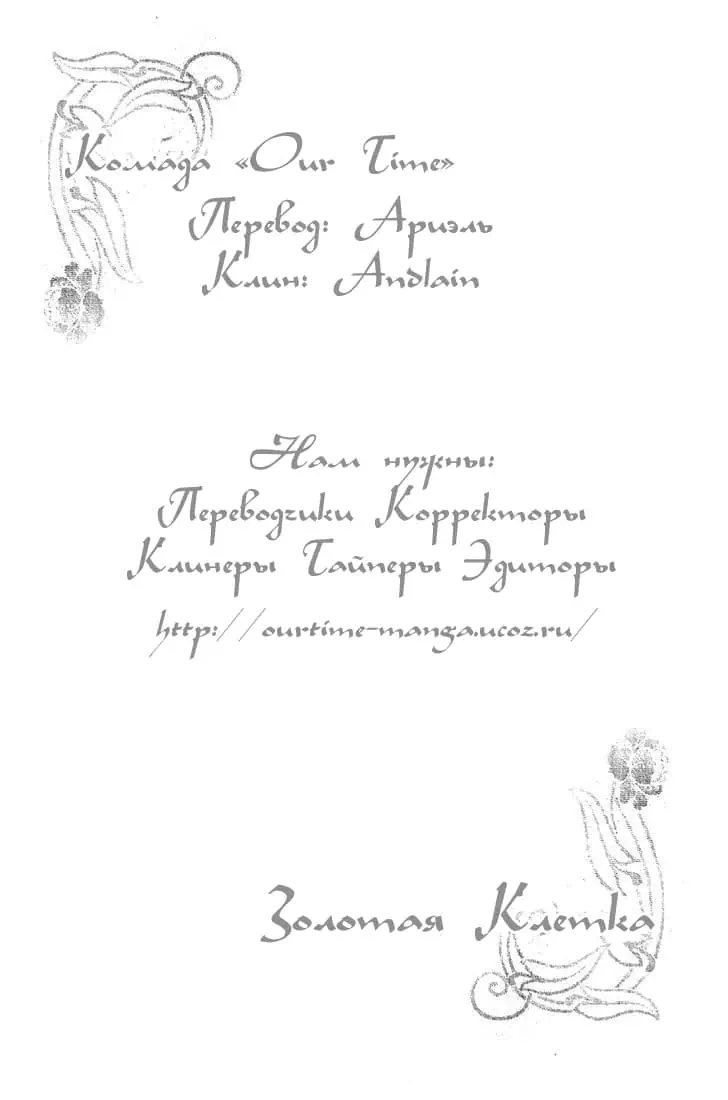 Команда «Our Time»
Перевод: Ариэль
Клин: Andlain
Нам нужны:
Переводчики Корректоры
Клинеры Тайперы Эдиторы
http://ourtime-manga.ucoz.ru/
Золотая Клетка